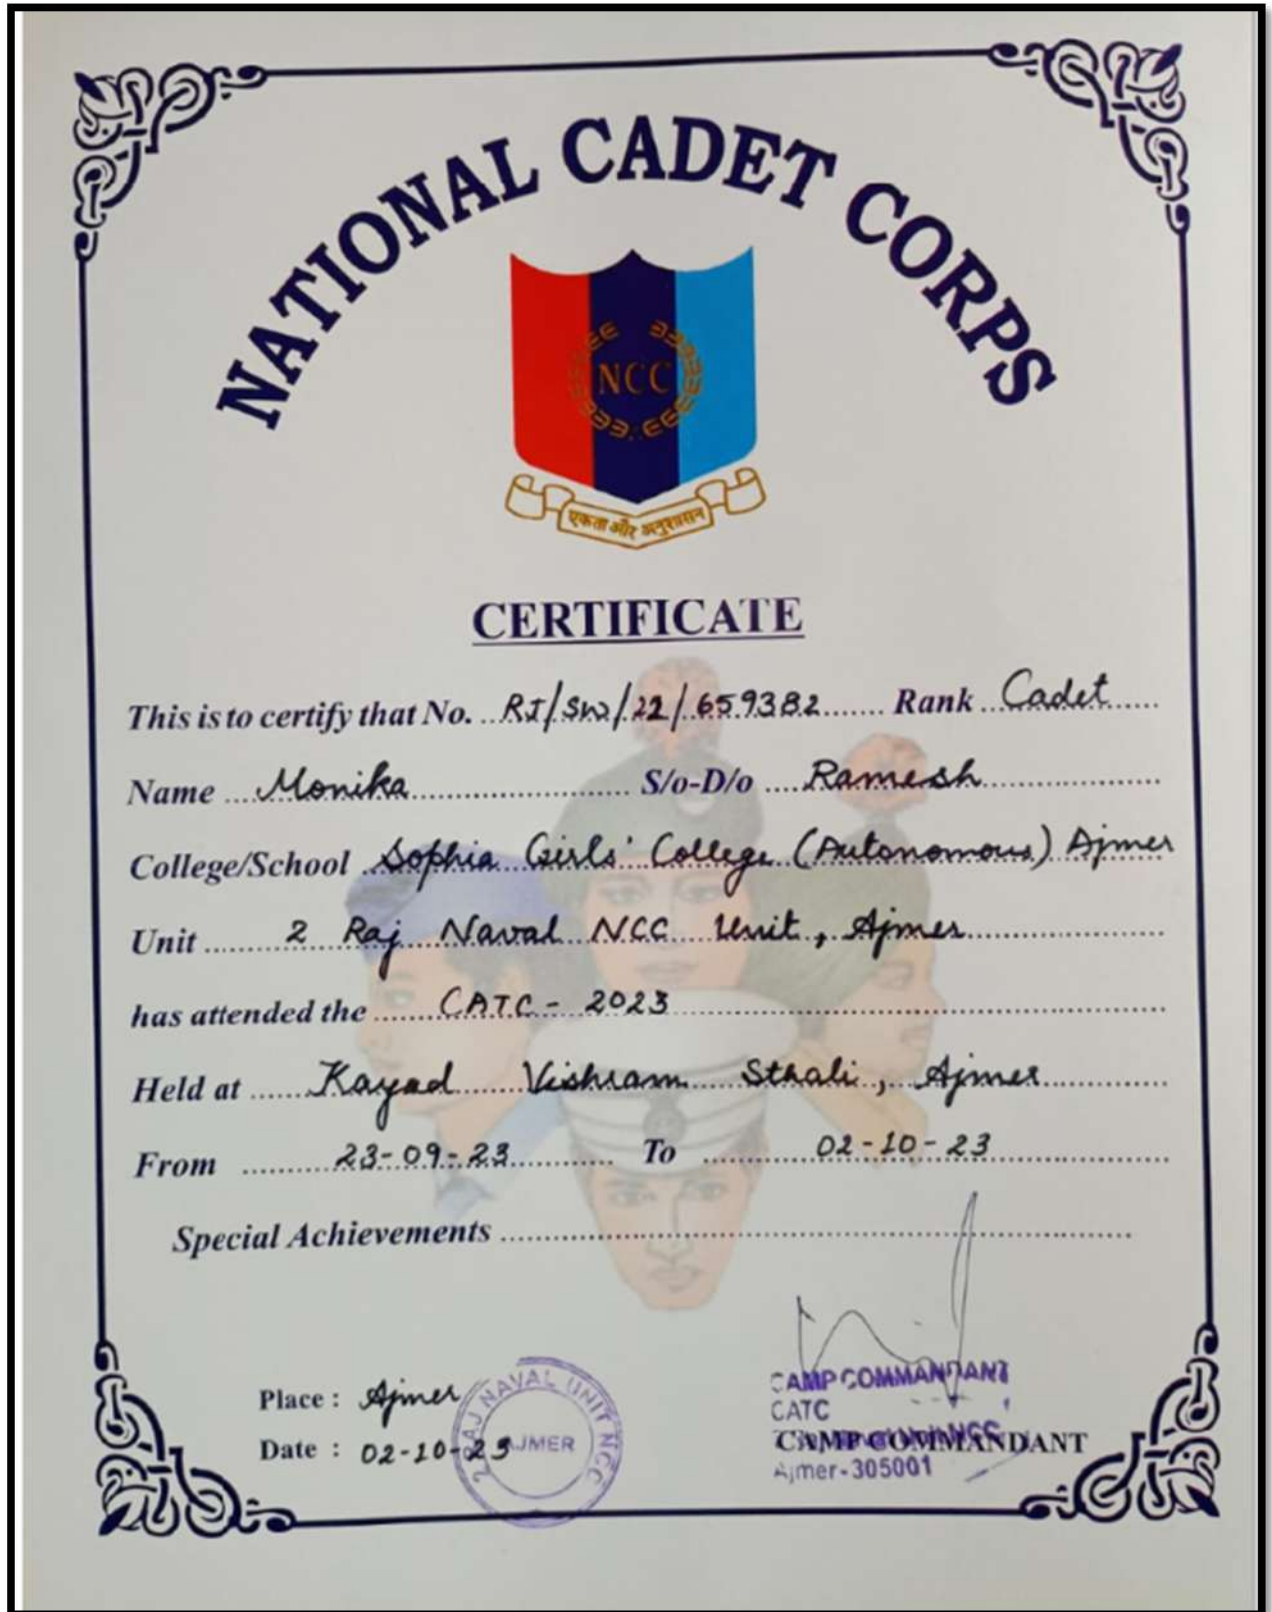 NATIONAL CADET CORPS
NCC
एकता और अनुशासन
CERTIFICATE
This is to certify that No. RJ/SW/22/659382 Rank Cadet
Name Monika S/o-D/o Ramesh
College/School Sophia Girls' College (Autonomous) Ajmer
Unit 2 Raj Naval NCC Unit, Ajmer
has attended the CATC - 2023
Held at Kayad Vishram Sthali, Ajmer
From 23-09-23 To 02-10-23
Special Achievements
Place : Ajmer
Date : 02-10-23
2 RAJ NAVAL UNIT NCC
AJMER
CAMP COMMANDANT
CATC
CAMP COMMANDANT
Ajmer-305001